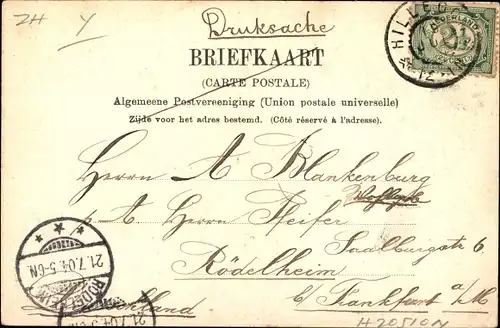 ZH Y
Druksache
BRIEFKAART
(CARTE POSTALE)
Algemeene Postvereeniging (Union postale universelle)
Zijde voor het adres bestemd. (Côté réservé à l'adresse).
NEDERLAND
2½
HILLEG
12
Herrn A Blankenburg
p A Herrn Pfeifer
Saalburgstr 6
Rödelheim
b/ Frankfurt a/M
21.7.04.5-6N.
RÖDELHEIM
H20510N